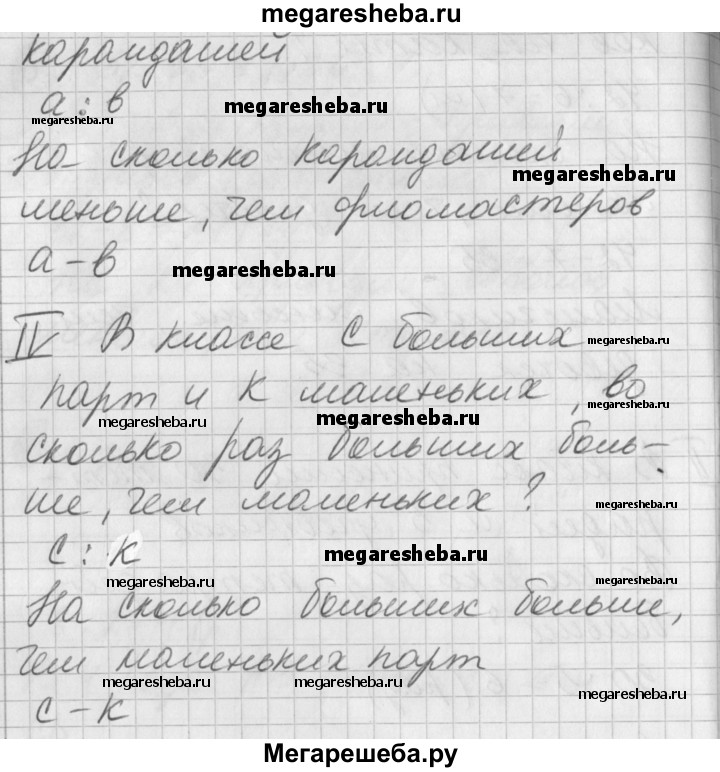 megaresheba.ru
карандашей
а : в
megaresheba.ru
megaresheba.ru
На сколько карандашей
megaresheba.ru
меньше, чем фломастеров
а - в
megaresheba.ru
IV В классе с больших
megaresheba.ru
парт и к маленьких, во
megaresheba.ru
megaresheba.ru
megaresheba.ru
сколько раз больших боль-
ше, чем маленьких?
megaresheba.ru
с : к
megaresheba.ru
megaresheba.ru
megaresheba.ru
На сколько больших больше,
чем маленьких парт
megaresheba.ru
megaresheba.ru
megaresheba.ru
с - к
Мегарешеба.ру